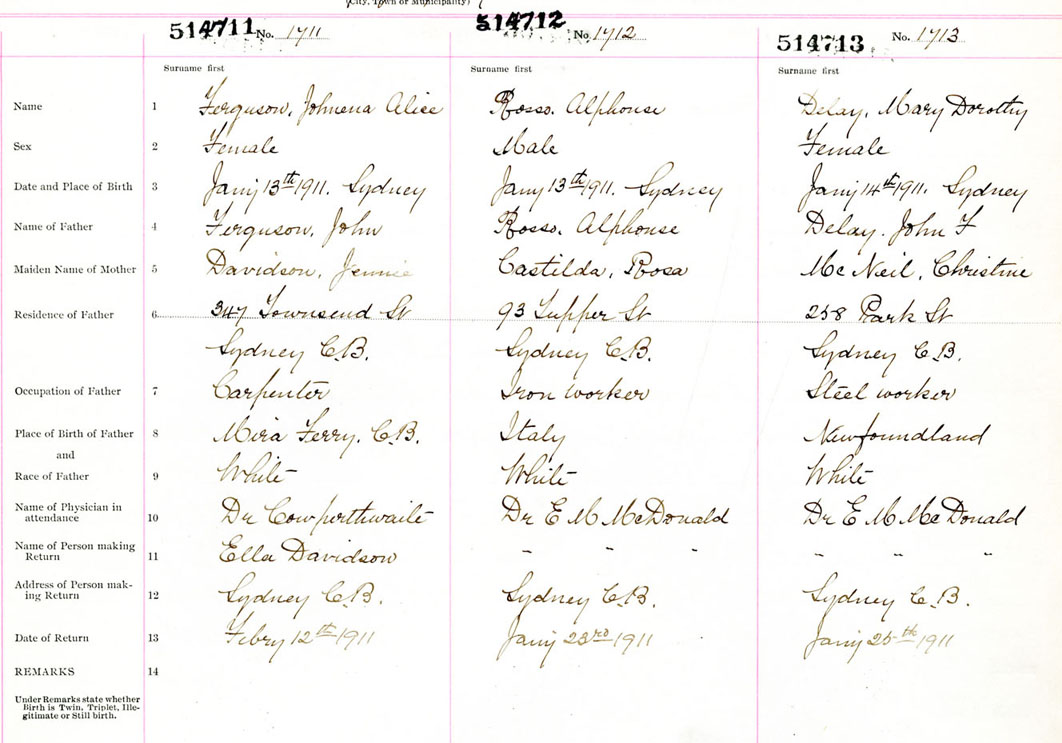 (City, Town or Municipality)
514711 No. 1711 514712 No. 1712 514713 No. 1713
Surname first Surname first Surname first
Name 1 Ferguson, Johnena Alice Rosso. Alphonse Delay, Mary Dorothy
Sex 2 Female Male Female
Date and Place of Birth 3 Jany 13th 1911. Sydney Jany 13th 1911. Sydney Jany 14th 1911. Sydney
Name of Father 4 Ferguson, John Rosso. Alphonse Delay. John F
Maiden Name of Mother 5 Davidson, Jennie Castilda, Rosa Mc Neil, Christine
Residence of Father 6 347 Townsend St 93 Tupper St 258 Park St
Sydney C.B. Sydney C.B. Sydney C.B.
Occupation of Father 7 Carpenter Iron worker Steel worker
Place of Birth of Father 8 Mira Ferry, C.B. Italy Newfoundland
and
Race of Father 9 White White White
Name of Physician in
attendance 10 Dr Cowperthwaite Dr E M McDonald Dr E M McDonald
Name of Person making
Return 11 Ella Davidson " " " " " "
Address of Person mak-
ing Return 12 Sydney C.B. Sydney C.B. Sydney C.B.
Date of Return 13 Febry 12th 1911 Jany 23rd 1911 Jany 25th 1911
REMARKS 14
Under Remarks state whether
Birth is Twin, Triplet, Ille-
gitimate or Still birth.